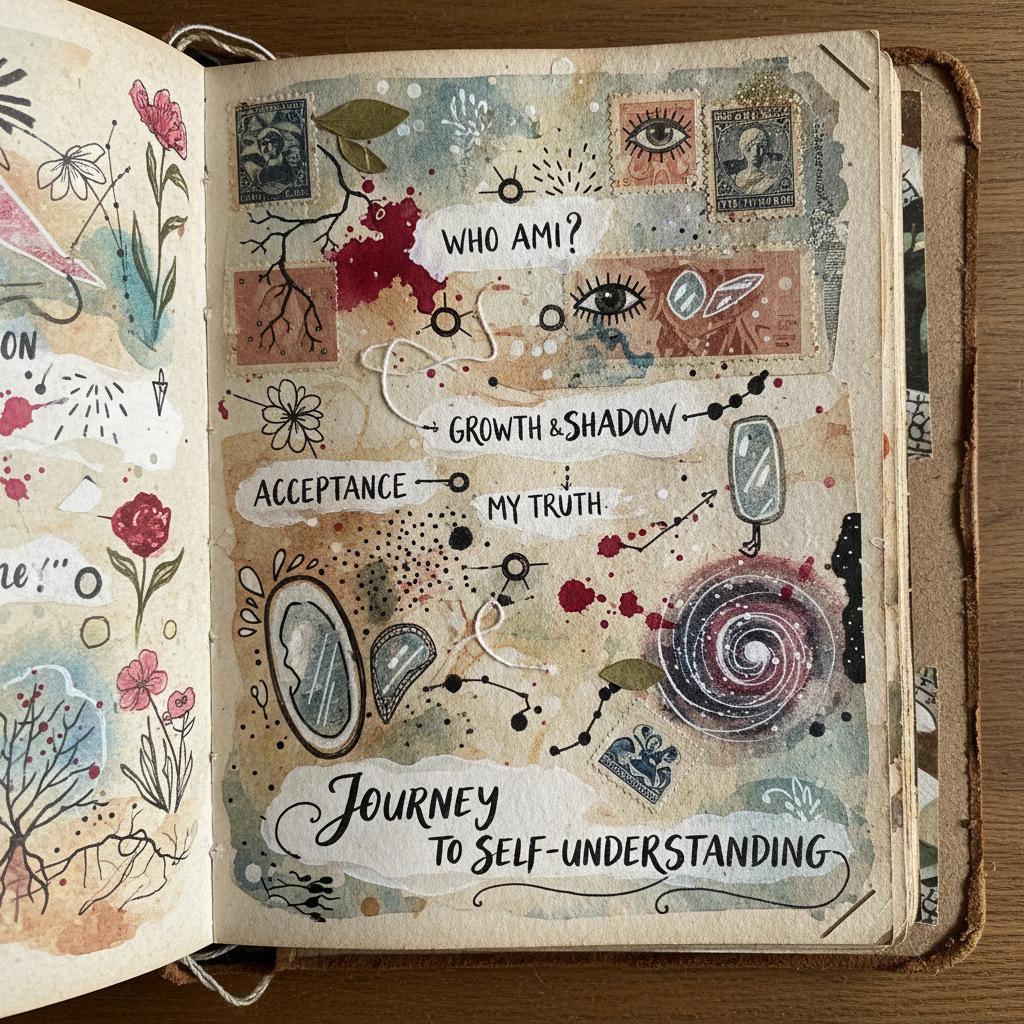 ON
ne!"
WHO AMI?
GROWTH & SHADOW
ACCEPTANCE
MY TRUTH
JOURNEY
TO SELF-UNDERSTANDING